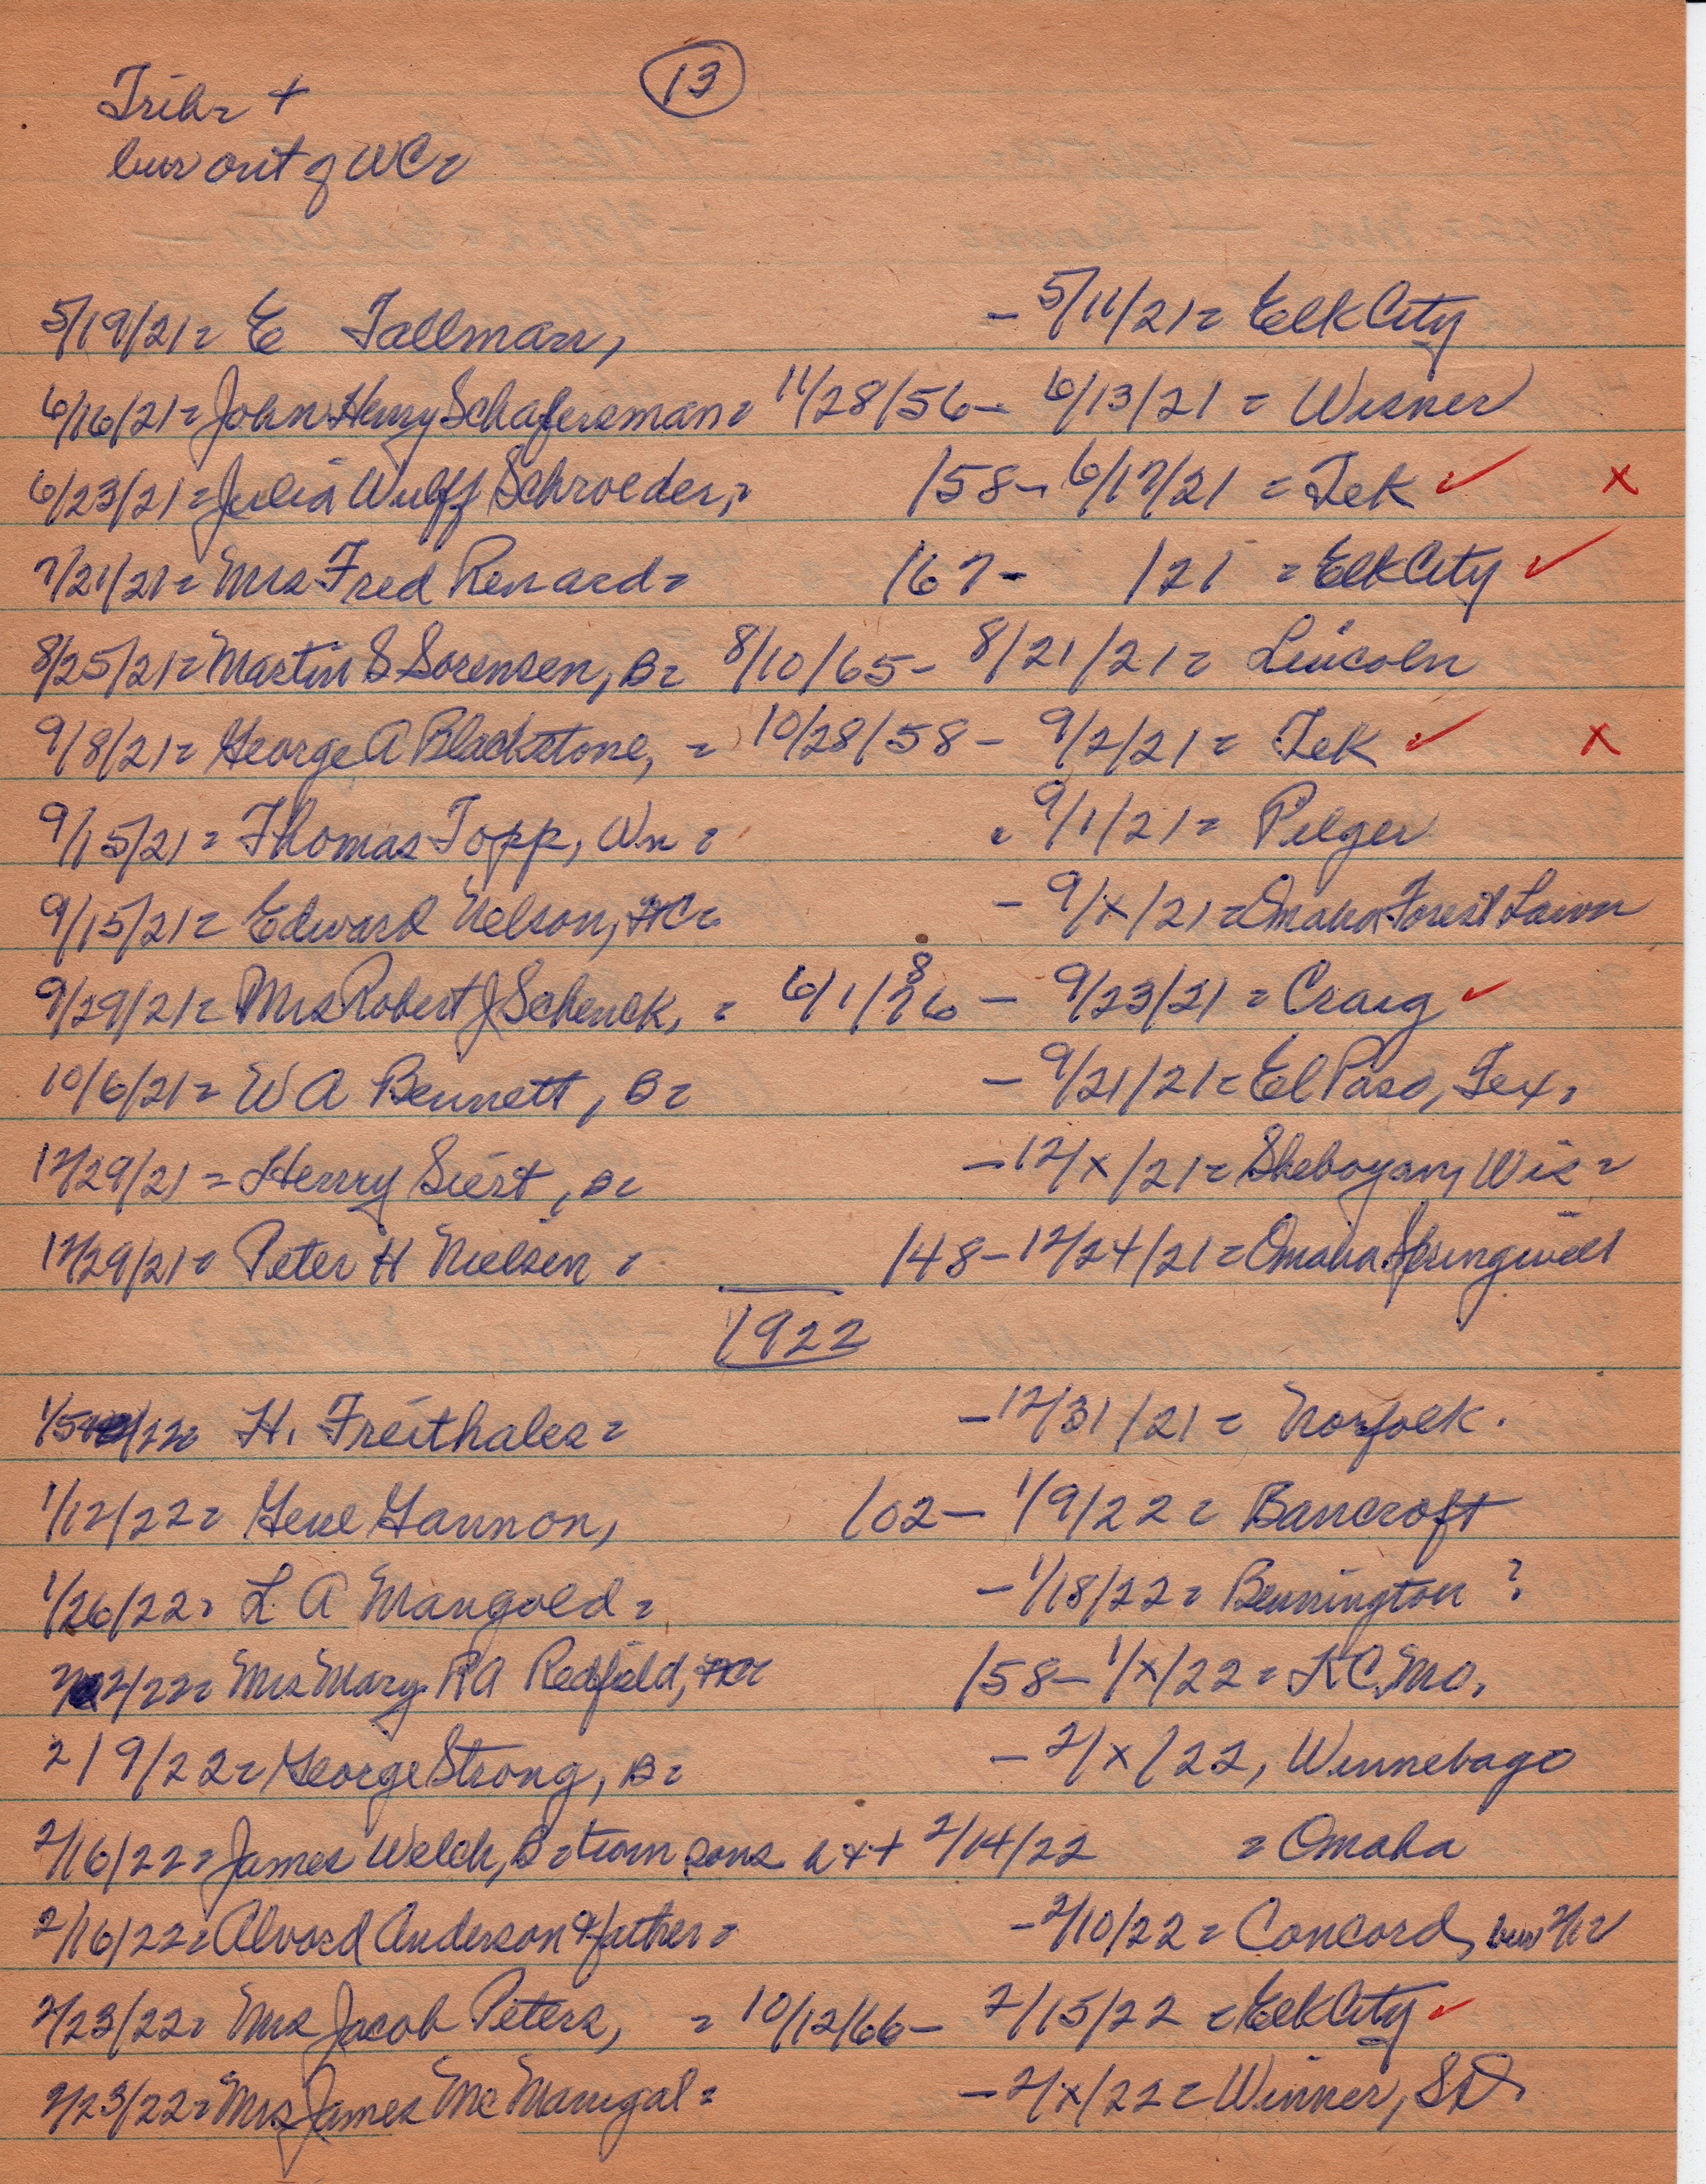 13
Trib = +
bur out of WC =
5/19/21 = E Tallman, - 5/11/21 = Elk City
6/16/21 = John Henry Schafersman = 11/28/56 - 6/13/21 = Wisner
6/23/21 = Julia Wulff Schroeder, = /58 - 6/17/21 = Tek ✓ x
7/21/21 = Mrs Fred Renard = /67 - /21 = Elk City ✓
8/25/21 = Martin S Sorensen, B = 8/10/65 - 8/21/21 = Lincoln
9/8/21 = George A Blackstone, = 10/28/58 - 9/2/21 = Tek ✓ x
9/15/21 = Thomas Topp, Wn = - 9/1/21 = Pilger
9/15/21 = Edward Nelson, - 9/x/21 = Omaha Forest Lawn
9/29/21 = Mrs Robert J Schenck, = 6/1/86 - 9/23/21 = Craig ✓
10/6/21 = W A Bennett, B = - 9/21/21 = El Paso, Tex.
12/29/21 = Henry Siert, B = - 12/x/21 = Sheboyan, Wis =
12/29/21 = Peter H Nielsen = /48 - 12/24/21 = Omaha Springwell
1922
1/5/22 = H. Freithales = - 12/31/21 = Norfolk.
1/12/22 = Gene Gannon, /02 - 1/9/22 = Bancroft
1/26/22 = L A Mangold = - 1/18/22 = Bennington ?
2/2/22 = Mrs Mary RA Redfield, /58 - 1/x/22 = KC, Mo.
2/9/22 = George Strong, B = - 2/x/22, Winnebago
2/16/22 = James Welch, B = sons 2/14/22 = Omaha
2/16/22 = Alvord Anderson & father = - 2/10/22 = Concord, bur 2/12
2/23/22 = Mrs Jacob Peters, = 10/12/66 - 2/15/22 = Elk City ✓
2/23/22 = Mrs James McManigal = - 2/x/22 = Winner, SD.